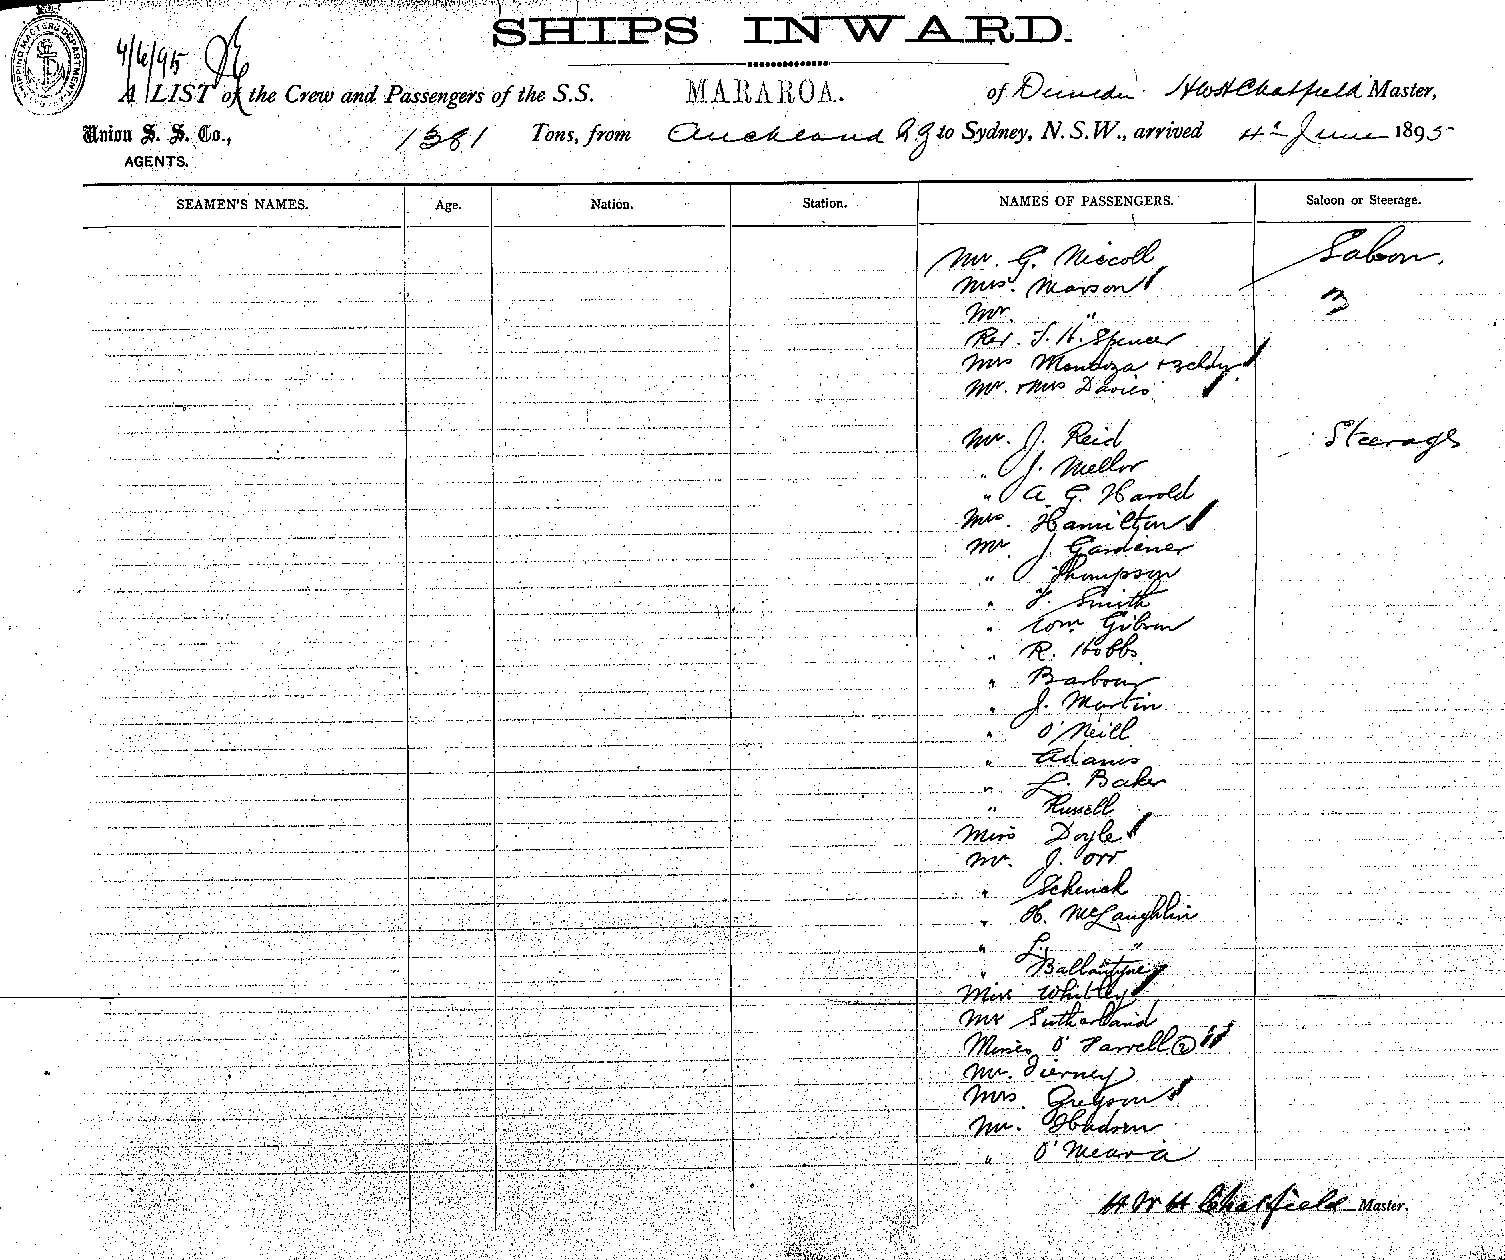 SHIPS INWARD.
SHIPPING MASTERS DEPARTMENT
4/6/95
A LIST of the Crew and Passengers of the S.S. MARAROA. of Dunedin H W H Chatfield Master,
Union S. S. Co., AGENTS. 1381 Tons, from Auckland to Sydney, N.S.W., arrived 4th June 1895
SEAMEN'S NAMES. Age. Nation. Station. NAMES OF PASSENGERS. Saloon or Steerage.
Mr. G. Niccoll Saloon.
Mrs. Marson
Mr. "
Rev. F. H. Spencer
Mrs Mendoza + 3 chdn
Mr. + Mrs Davies
Mr. J. Reid Steerage
" J. Mellor
" A. G. Harold
Mrs. Hamilton
Mr. J. Gardener
" Thompson
" F. Smith
" Wm Gibson
" R. Hobbs
" Barbour
" J. Martin
" O'Neill
" Adams
" L. Baker
" Russell
Miss Doyle
Mr. J. Orr
" Schenck
" H. McLaughlin
" L. "
" Ballantyne
Miss Whitley
Mr Sutherland
Misses O'Farrell (2)
Mr. Tierney
Mrs. Greyson
Mr.
" O'Meara
H W H Chatfield Master.